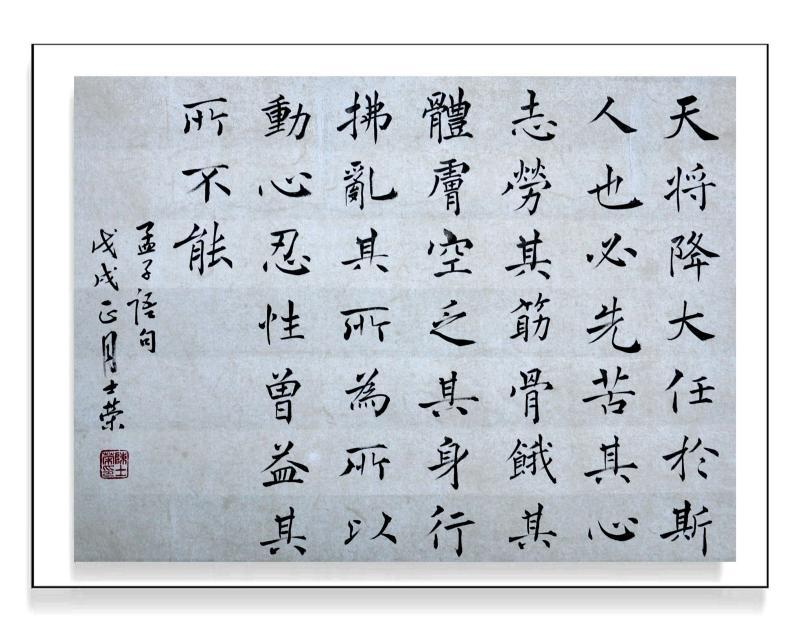 天将降大任於斯
人也必先苦其心
志勞其筋骨餓其
體膚空乏其身行
拂亂其所為所以
動心忍性曾益其
所不能
孟子語句
戊戌正月士荣
陈士荣印